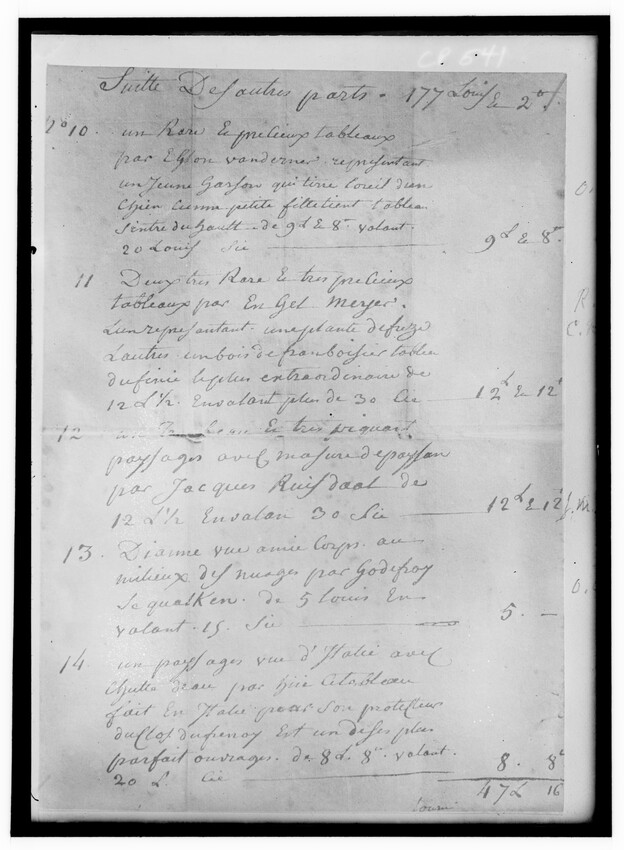 CP 041
Suitte Des autres parts. 177 Louis & 2°
N° 10. un Rare & precieux tableaux
par Eglon vanderner representant
un Jeune Garson qui tire loreil dun
Chien & une petite fille tient tableau
Sintré du hault. de 9L & 8s valant.
20 Louis Sie 9L & 8s.
11 Deux tres Rare & tres precieux
tableaux par En Gel Meyer.
Lun representant une plante de freze
Lautres un bois de franboisier tableau
du finie le plus extraordinaire de
12 L 1/2. En valant plus de 30 Cie 12L & 12s
12 un & tres piquant
paysages avec masure de paysan
par Jacques Ruisdaal de
12 L 1/2 En valan 30 Sie 12L & 12s
13. Dianne vue a mie Corps. au
milieux des nuages par Godefroy
Sequalken. de 5 Louis En
valant. 15. Sie 5. —
14. un paysages vue d'Italie avec
Chutte deau par
fait En Italie pour Son protecteur
du Clos dufrenoy Est un de ses plus
parfait ouvrages. de 8L. 8s. valant.
20 L. Cie 8. 8s
47L 16